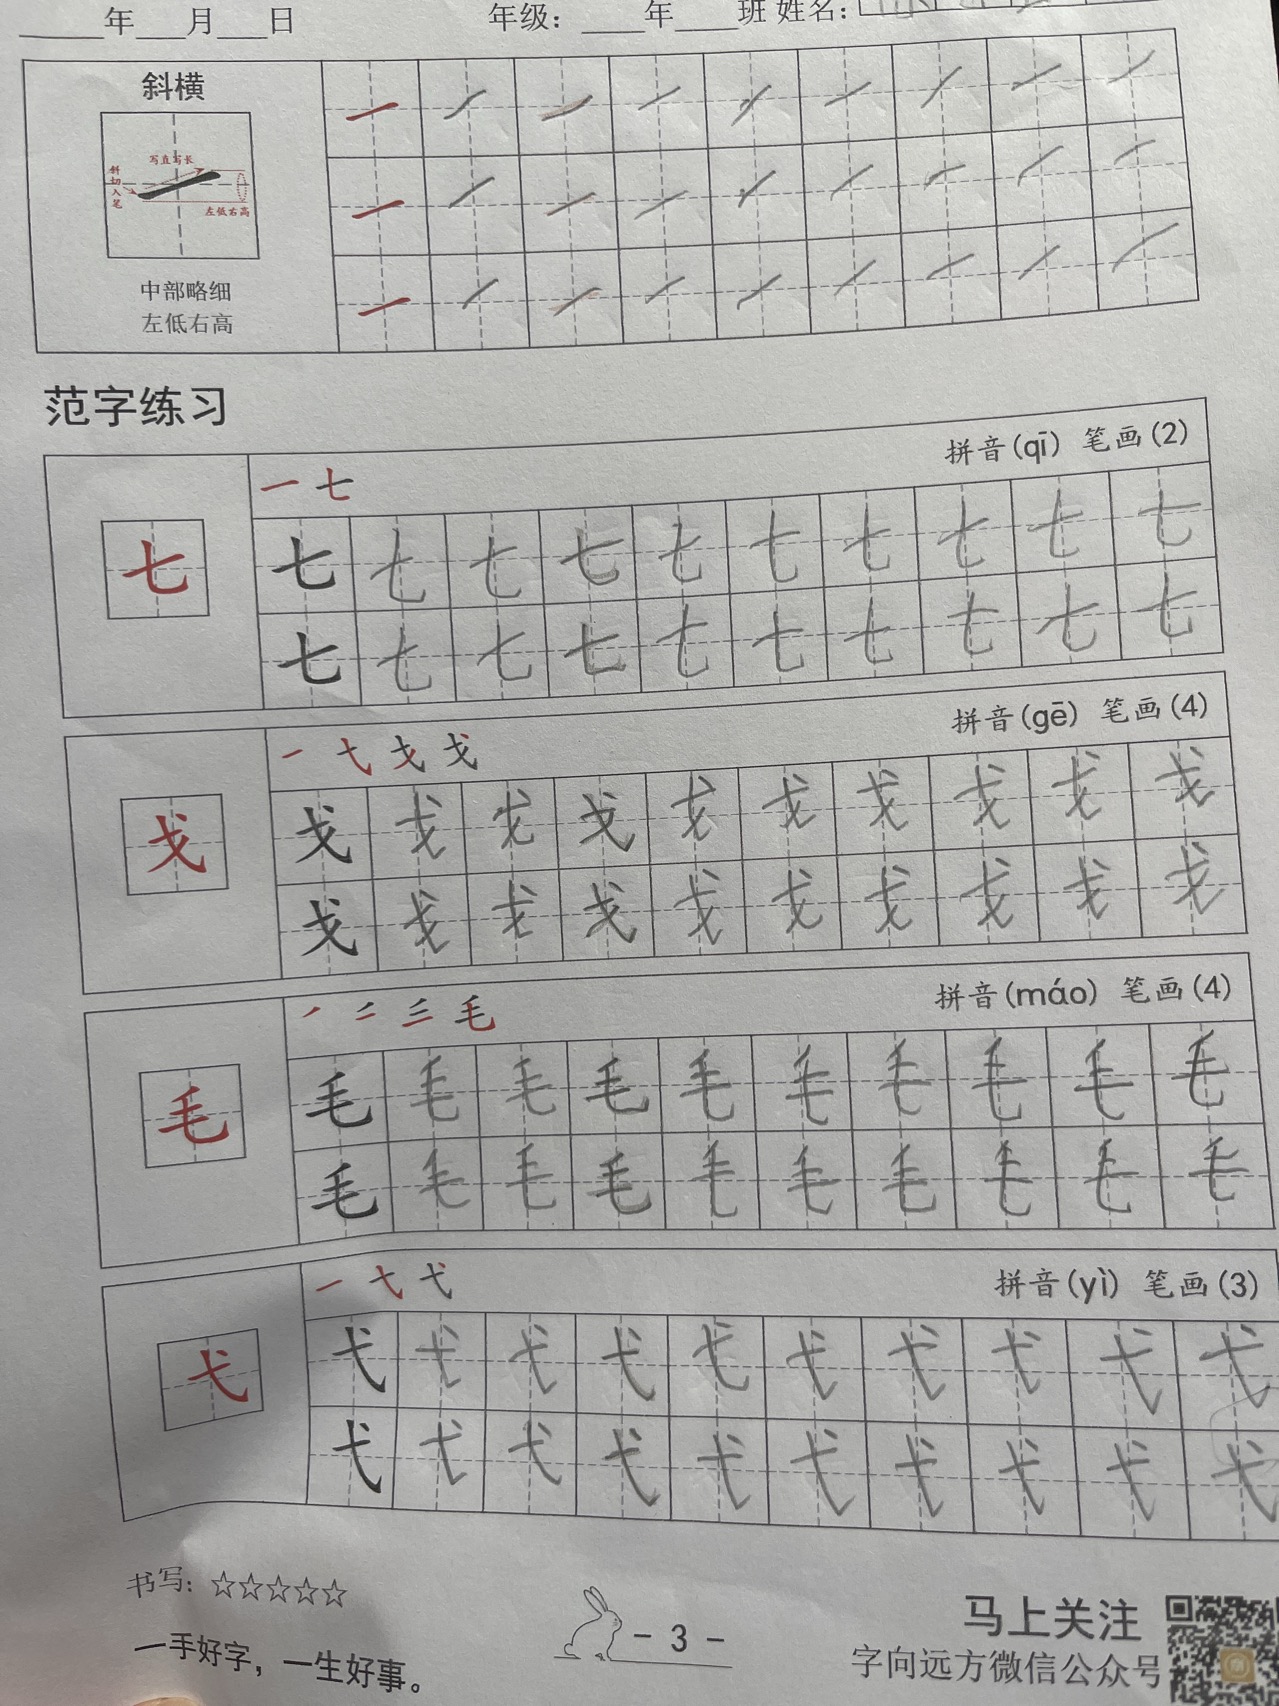 ____年___月___日 年级：____年____班 姓名：
斜横
写直写长
斜切入笔
左低右高
中部略细
左低右高
范字练习
一 七 拼音(qī) 笔画(2)
七 七 七 七 七 七 七 七 七 七 七
七 七 七 七 七 七 七 七 七 七
一 弋 戈 戈 拼音(gē) 笔画(4)
戈 戈 戈 戈 戈 戈 戈 戈 戈 戈 戈
戈 戈 戈 戈 戈 戈 戈 戈 戈 戈
毛 拼音(máo) 笔画(4)
毛 毛 毛 毛 毛 毛 毛 毛 毛 毛 毛
毛 毛 毛 毛 毛 毛 毛 毛 毛 毛
一 弋 弋 拼音(yì) 笔画(3)
弋 弋 弋 弋 弋 弋 弋 弋 弋 弋 弋
弋 弋 弋 弋 弋 弋 弋 弋 弋 弋
书写：☆☆☆☆☆
一手好字，一生好事。
- 3 -
马上关注
字向远方微信公众号